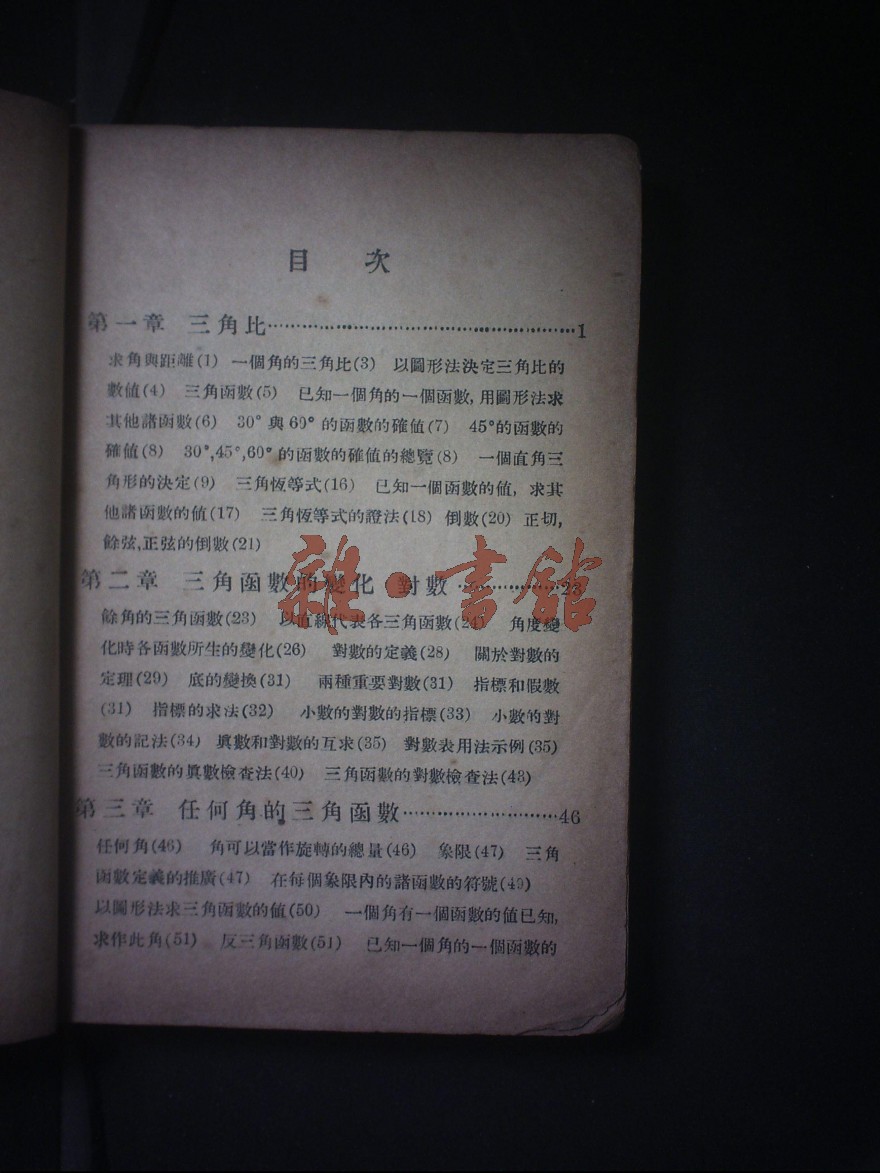 目 次
第一章 三角比……………………………………1
求角與距離(1) 一個角的三角比(3) 以圖形法決定三角比的
數値(4) 三角函數(5) 已知一個角的一個函數,用圖形法求
其他諸函數(6) 30°與60°的函數的確値(7) 45°的函數的
確値(8) 30°,45°,60°的函數的確値的總覽(8) 一個直角三
角形的決定(9) 三角恆等式(16) 已知一個函數的値,求其
他諸函數的値(17) 三角恆等式的證法(18) 倒數(20) 正切,
餘弦,正弦的倒數(21)
第二章 三角函數的變化 對數………………23
餘角的三角函數(23) 以直線代表各三角函數(24) 角度變
化時各函數所生的變化(26) 對數的定義(28) 關於對數的
定理(29) 底的變換(31) 兩種重要對數(31) 指標和假數
(31) 指標的求法(32) 小數的對數的指標(33) 小數的對
數的記法(34) 眞數和對數的互求(35) 對數表用法示例(35)
三角函數的眞數檢查法(40) 三角函數的對數檢查法(43)
第三章 任何角的三角函數……………………46
任何角(46) 角可以當作旋轉的總量(46) 象限(47) 三角
函數定義的推廣(47) 在每個象限內的諸函數的符號(49)
以圖形法求三角函數的値(50) 一個角有一個函數的値已知,
求作此角(51) 反三角函數(51) 已知一個角的一個函數的
雜·書館